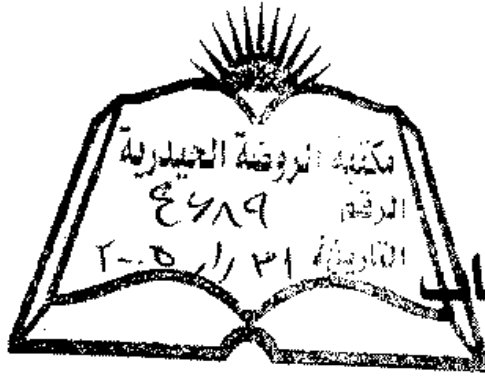 مكتبة الروضة الحيدرية
الرقم ٤٦٨٩
التاريخ ٣١ /١/ ٢٠٠٥